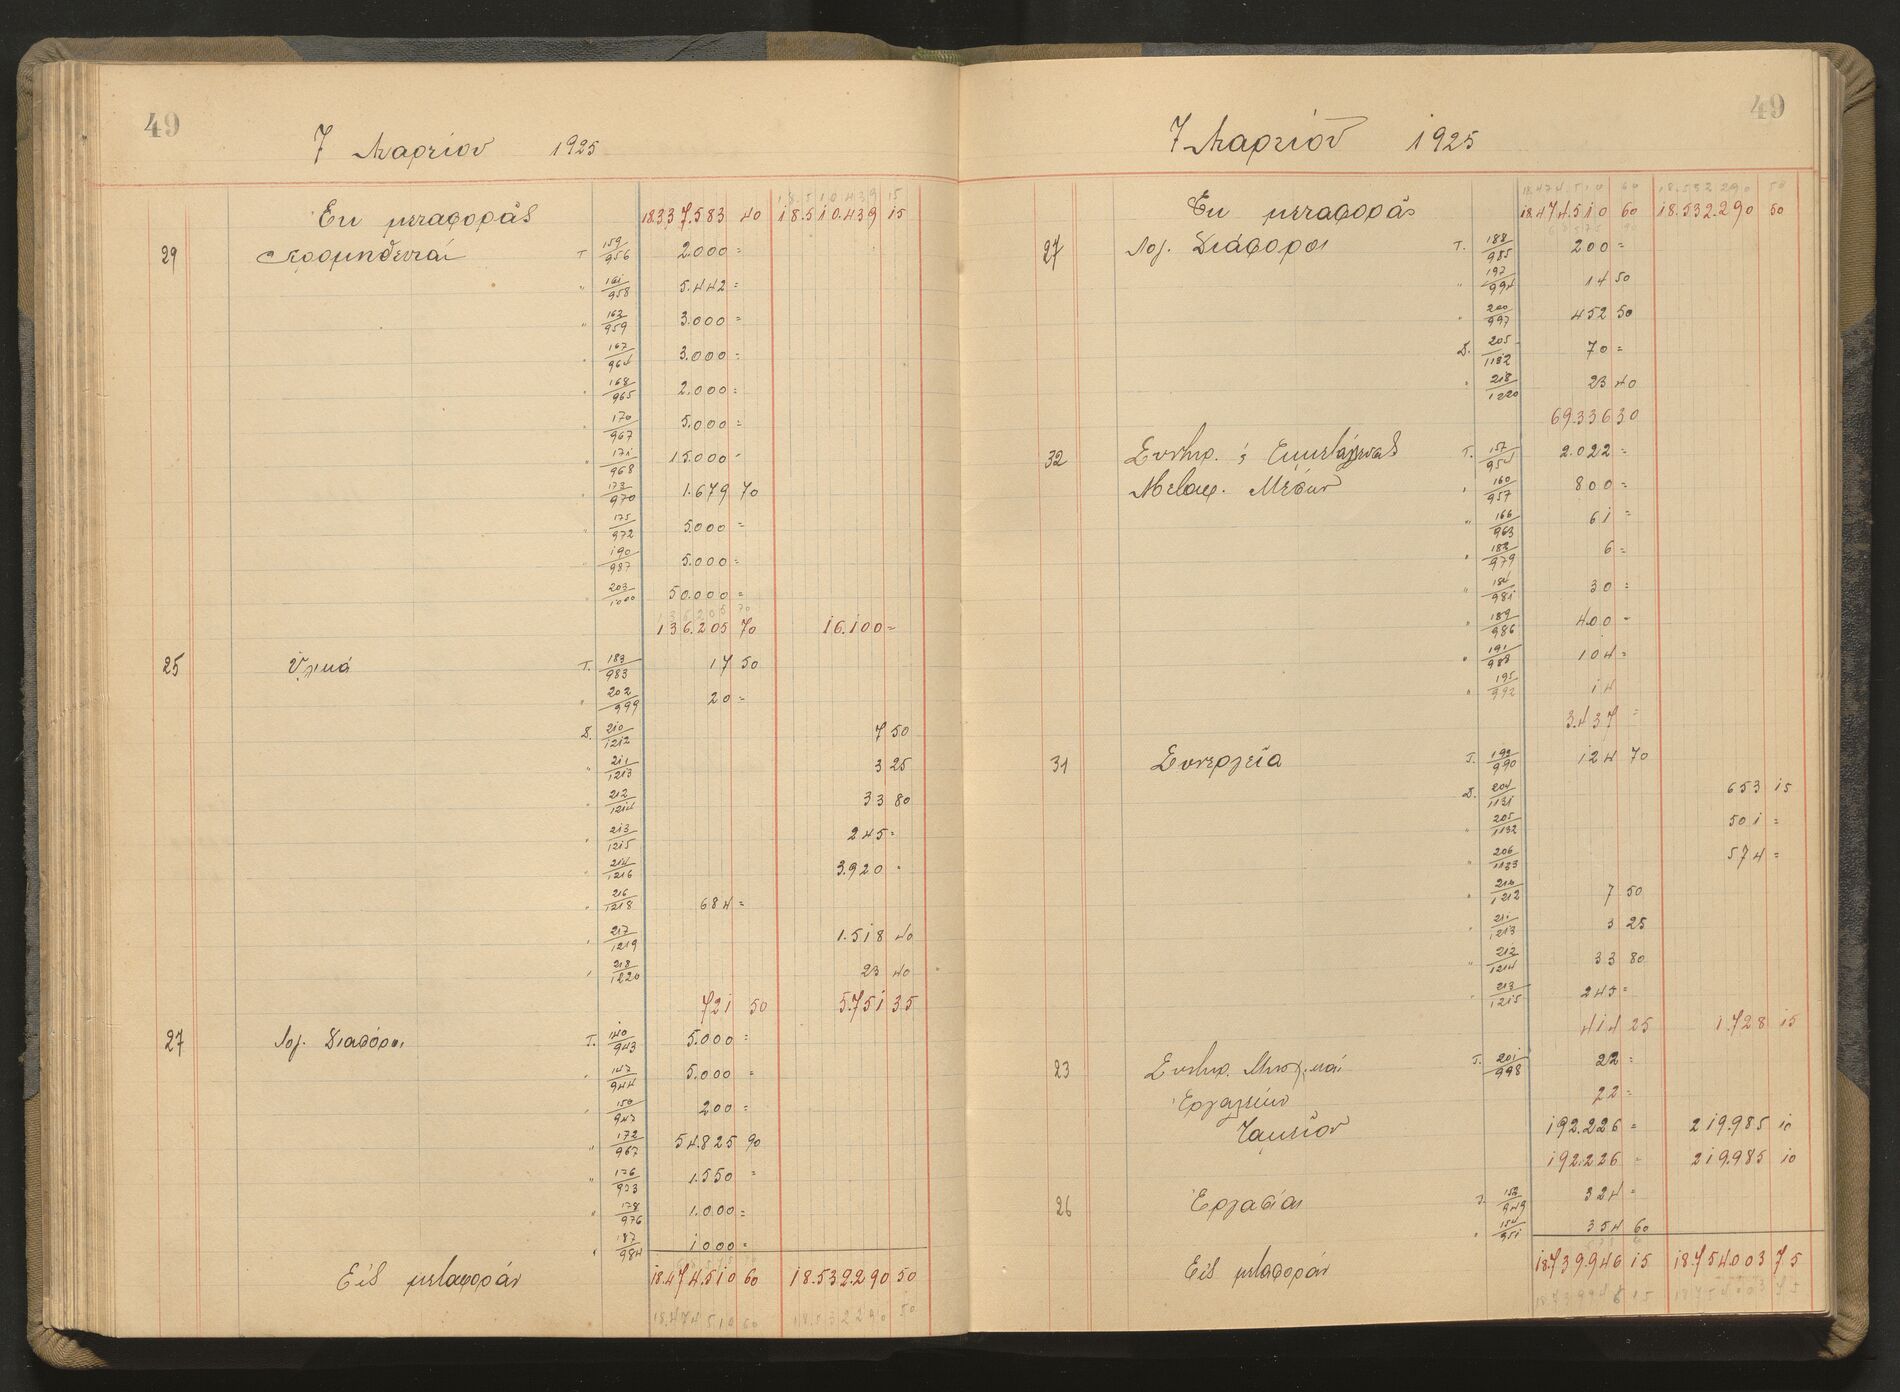 49
7 Μαρτίου 1925
Εκ μεταφοράς 18.337.583 40 18.510.439 15
18.510.439 15
29 Προμηθευταί T 159/956 2.000 =
" 161/958 5.442 =
" 162/959 3.000 =
" 167/964 3.000 =
" 168/965 2.000 =
" 170/967 5.000 =
" 171/968 15.000 =
" 173/970 1.679 70
" 175/972 5.000 =
" 190/987 5.000 =
" 203/1000 50.000 =
136.205 70 16.100 =
25 Υλικά T. 183/983 17 50
" 202/999 20 =
Δ. 210/1212 7 50
" 211/1213 3 25
" 212/1214 33 80
" 213/1215 245 =
" 214/1216 3.920 =
" 216/1218 684 =
" 217/1219 1.518 40
" 218/1220 23 40
721 50 5.751 35
27 Λογ. Διαφόροι T. 140/943 5.000 =
" 147/944 5.000 =
" 150/947 200 =
" 172/967 54.825 90
" 176/973 1.550 =
" 178/976 1.000 =
" 187/984 1000 =
Εις μεταφοράν 18.474.510 60 18.532.290 50
18.474510 60 18.532290 50
49
7 Μαρτίου 1925
18.474.510 60 18.532.290 50
Εκ μεταφοράς 18.474.510 60 18.532.290 50
27 Λογ. Διάφοροι T. 188/985 200 =
" 197/994 14 50
" 200/997 452 50
Δ. 205/1132 70 =
" 218/1220 23 40
69.336 30
32 Συντηρ. & Εκμετάλλευσις T. 157/954 2.022 =
Μεταφ. Μέσων " 160/957 800 =
" 166/963 61 =
" 182/979 6 =
" 184/981 30 =
" 189/986 400 =
" 191/988 104 =
" 195/992 14
3.437 =
31 Συνεργεία T. 193/990 124 70
Δ. 204/1131 653 15
" 205/1132 501 =
" 206/1133 574 =
" 210/1212 7 50
" 211/1213 3 25
" 212/1214 33 80
" 213/1215 245 =
414 25 1.728 15
23 Συντηρ. T. 201/998 22 =
Εργαλείων 22 =
Ταμείον 192.226 = 219.985 10
192.226 = 219.985 10
26 Εργασίαι T. 152/949 324 =
" 154/951 354 60
Εις μεταφοράν 18.739.946 15 18.754.003 75
18.739946 15 18.754003 75